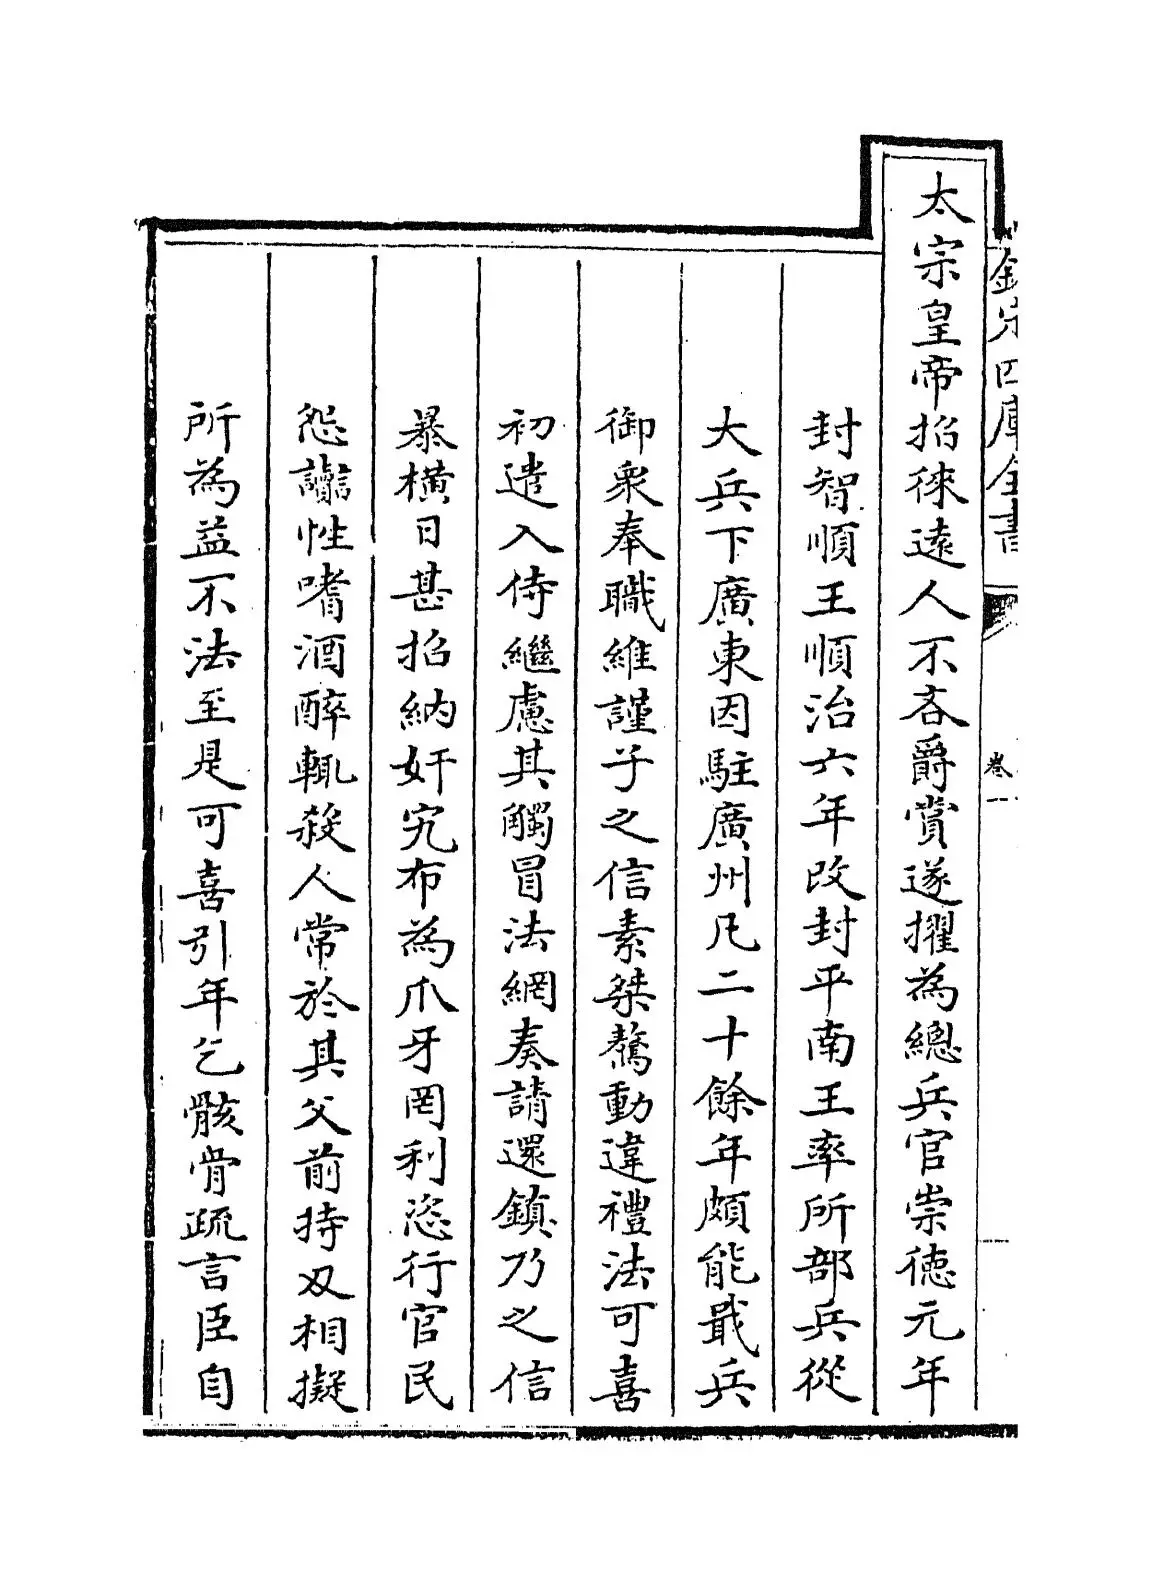 欽定四庫全書
卷一
太宗皇帝招徠遠人不吝爵賞遂擢為總兵官崇德元年
封智順王順治六年改封平南王率所部兵從
大兵下廣東因駐廣州凡二十餘年頗能戢兵
御衆奉職維謹子之信素桀驁動違禮法可喜
初遣入侍繼慮其觸冒法網奏請還鎮乃之信
暴橫日甚招納奸宄布為爪牙罔利恣行官民
怨讟性嗜酒醉輒殺人常於其父前持刃相擬
所為益不法至是可喜引年乞骸骨疏言臣自